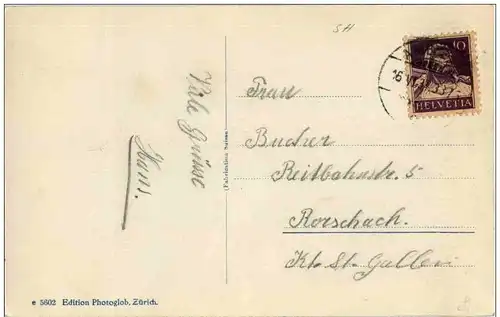 SH
10
HELVETIA
Viele Grüsse
Hans.
(Fabrication Suisse)
Frau
Bucher
Reitbahnstr. 5
Rorschach.
Kt. St. Gallen
e 5602 Edition Photoglob, Zürich.